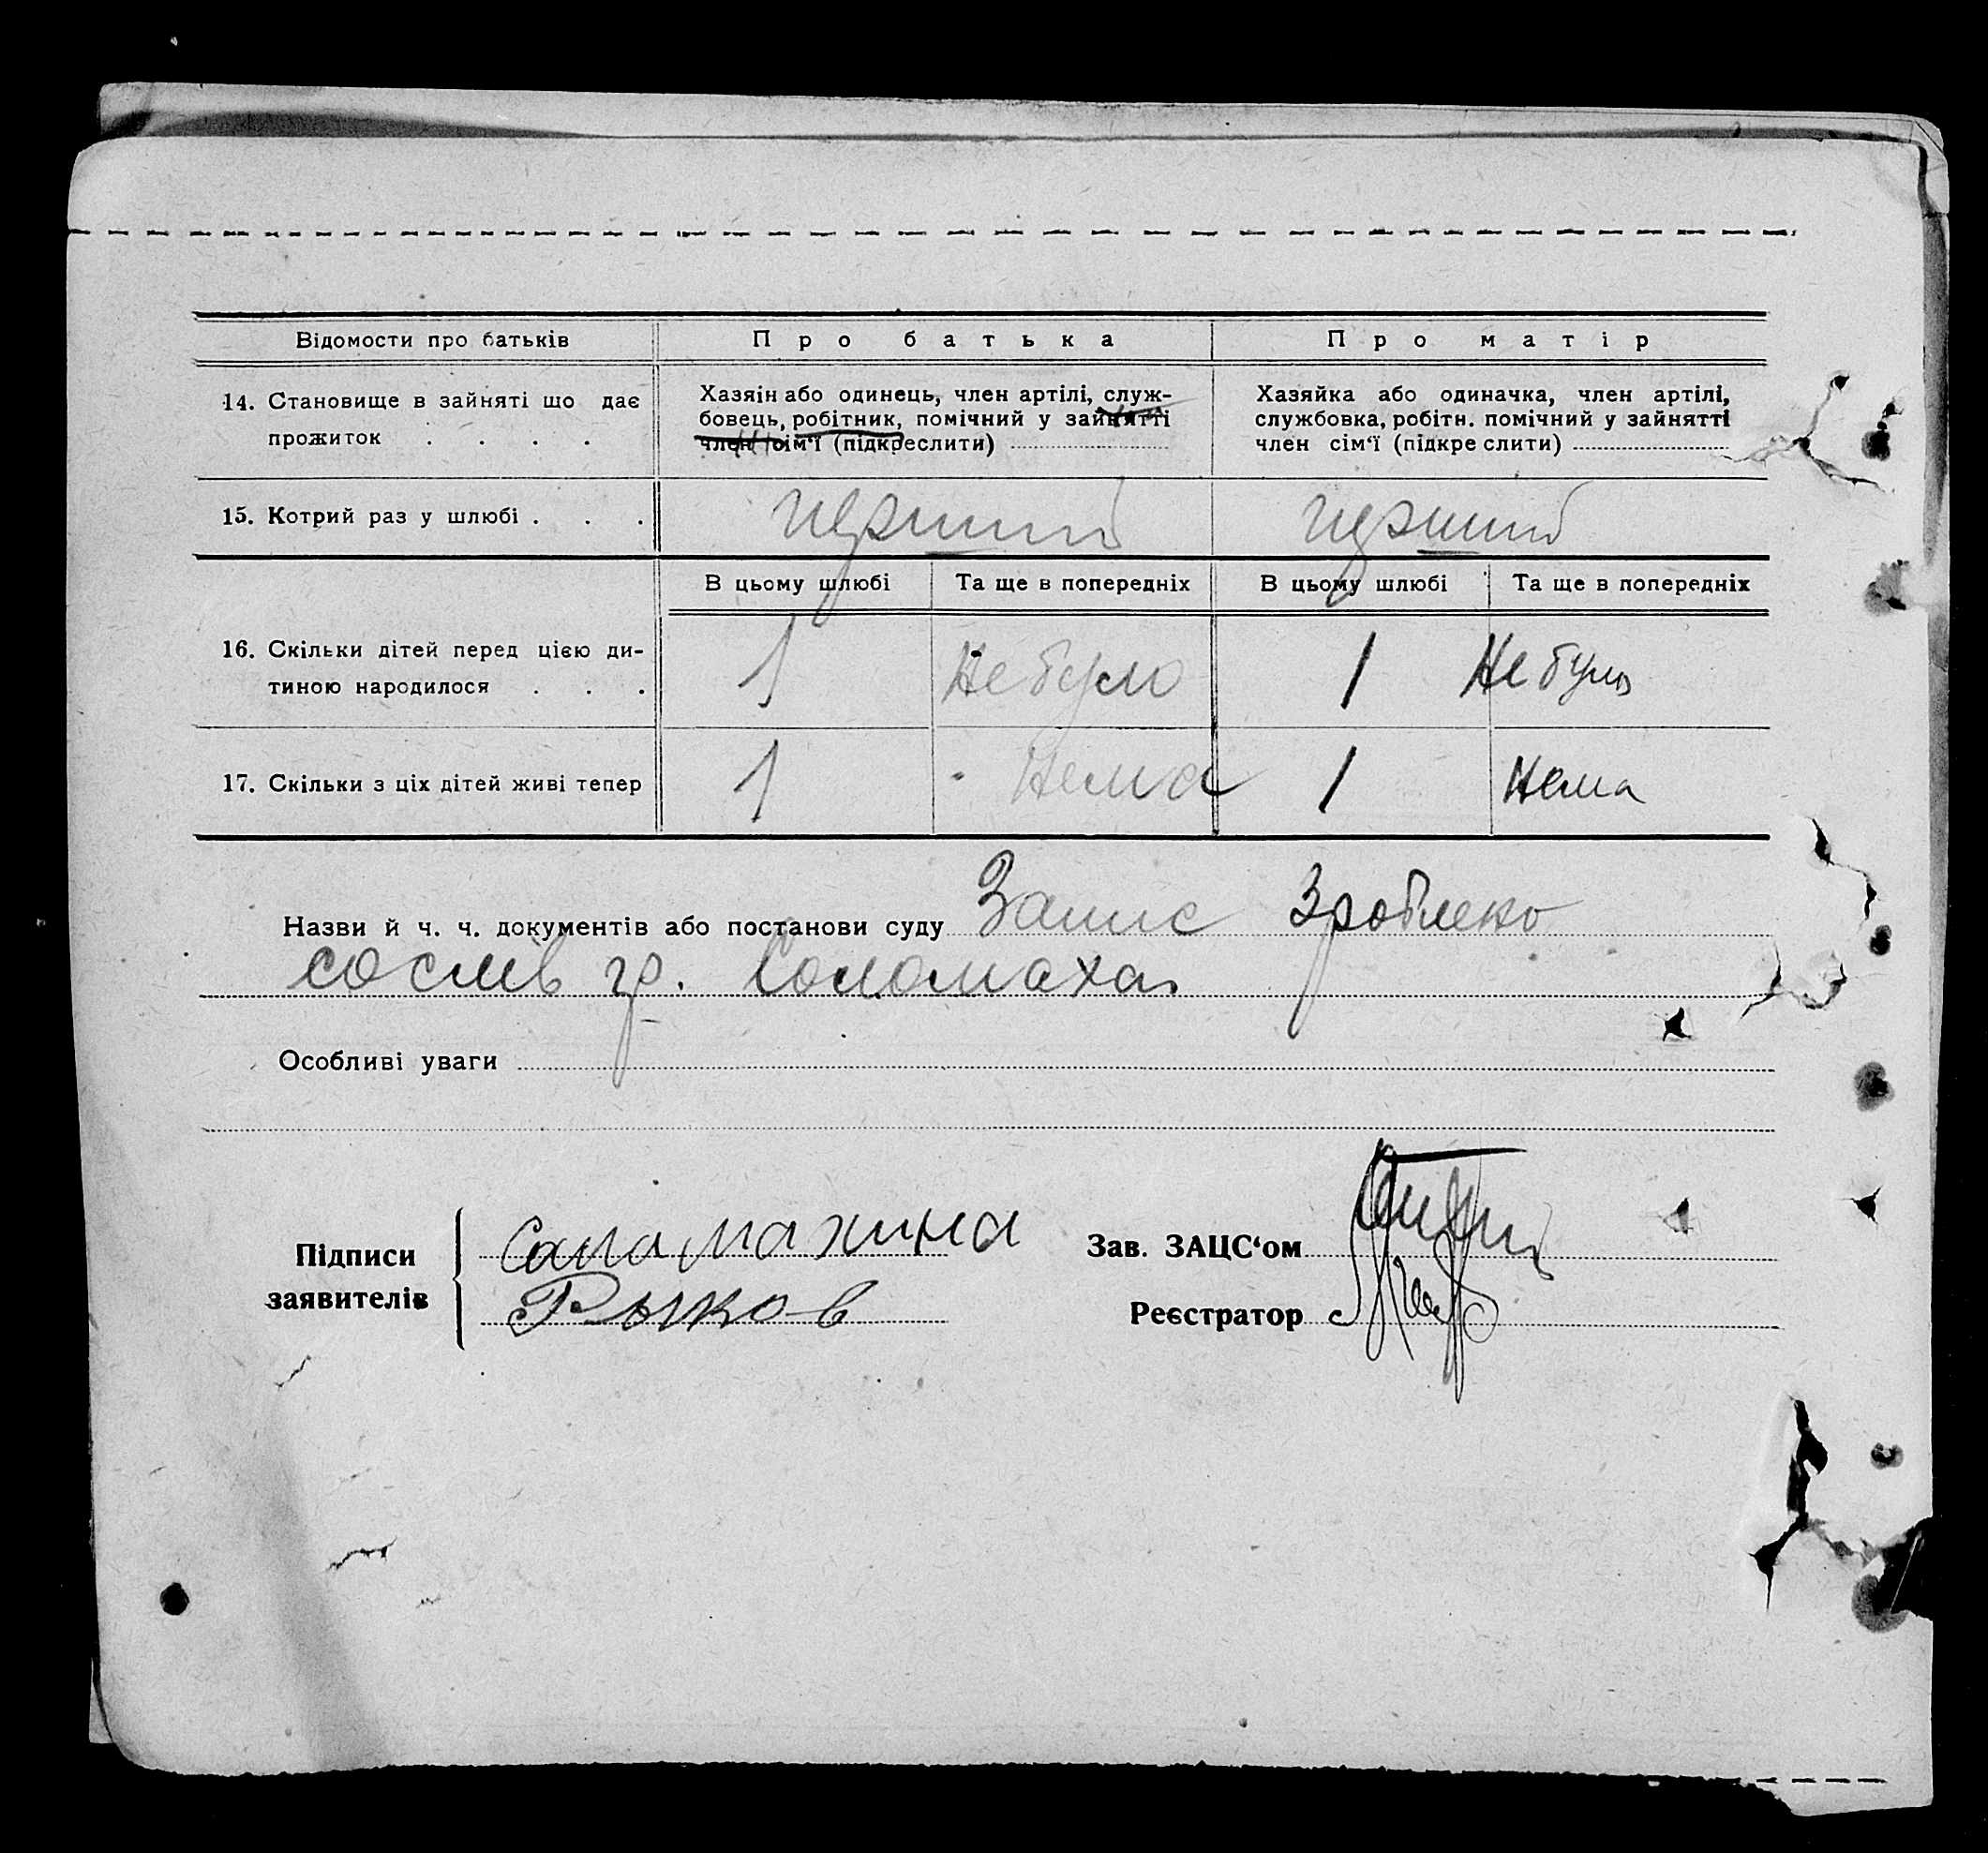 Відомости про батьків
Про батька
Про матір
14. Становище в зайняті що дає
прожиток . . . .
Хазяін або одинець, член артілі, служ-
бовець, робітник, помічний у зайнятті
член сім‘ї (підкреслити)
Хазяйка або одиначка, член артілі,
службовка, робітн. помічний у зайнятті
член сім‘ї (підкреслити)
15. Котрий раз у шлюбі . . .
перший
перший
В цьому шлюбі
Та ще в попередніх
В цьому шлюбі
Та ще в попередніх
16. Скільки дітей перед цією ди-
тиною народилося . . .
1
Не було
1
Не було
17. Скільки з ціх дітей живі тепер
1
Нема
1
Нема
Назви й ч. ч. документів або постанови суду Запис Зроблено
со слів гр. Соломаха
Особливі уваги
Підписи
заявителів
Саламахина
Рыков
Зав. ЗАЦС‘ом
Реєстратор